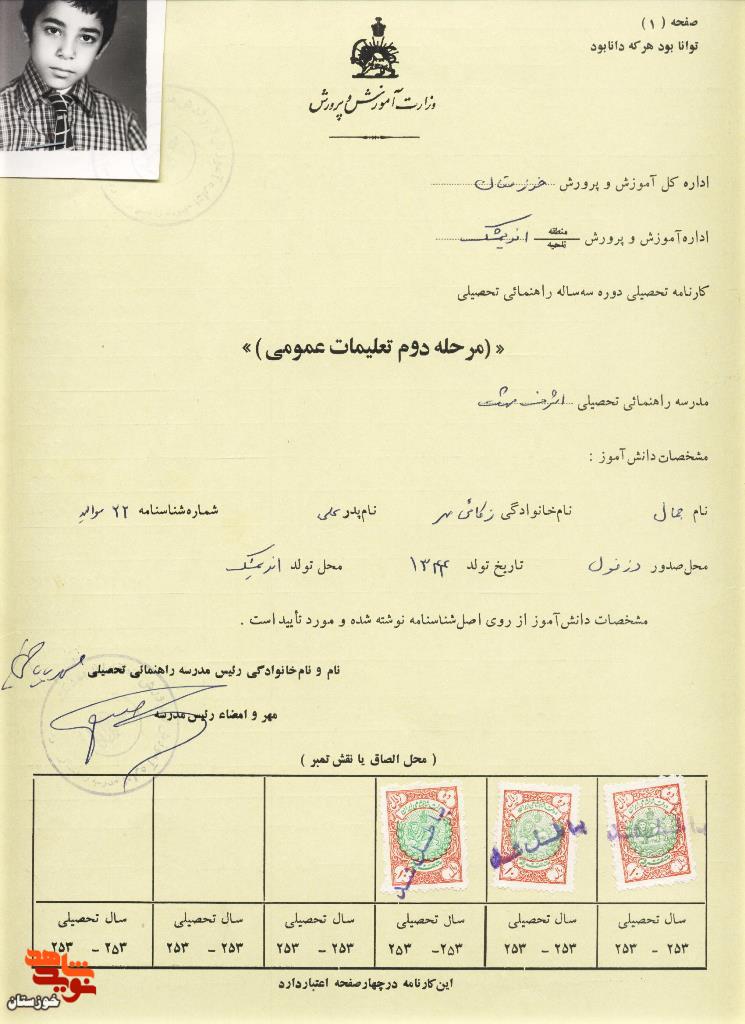 صفحه (۱)
توانا بود هرکه دانابود
وزارت آموزش و پرورش
اداره کل آموزش و پرورش خوزستان
اداره آموزش و پرورش منطقه ناحیه اندیمشک
کارنامه تحصیلی دوره سه‌ساله راهنمائی تحصیلی
«(مرحله دوم تعلیمات عمومی)»
مدرسه راهنمائی تحصیلی اشرف
مشخصات دانش‌آموز :
نام جمال نام‌خانوادگی زکائی مهر نام‌پدر علی شماره‌شناسنامه ۲۲
محل‌صدور دزفول تاریخ تولد ۱۳۴۴ محل تولد اندیمشک
مشخصات دانش‌آموز از روی اصل‌شناسنامه نوشته شده و مورد تأیید است .
نام و نام‌خانوادگی رئیس مدرسه راهنمائی تحصیلی
مهر و امضاء رئیس مدرسه
( محل الصاق یا نقش تمبر )
باطل شد باطل شد باطل شد
سال تحصیلی سال تحصیلی سال تحصیلی سال تحصیلی سال تحصیلی سال تحصیلی
۲۵۳ - ۲۵۳ ۲۵۳ - ۲۵۳ ۲۵۳ - ۲۵۳ ۲۵۳ - ۲۵۳ ۲۵۳ - ۲۵۳ ۲۵۳ - ۲۵۳
این‌کارنامه درچهارصفحه اعتباردارد
نوید شاهد
خوزستان